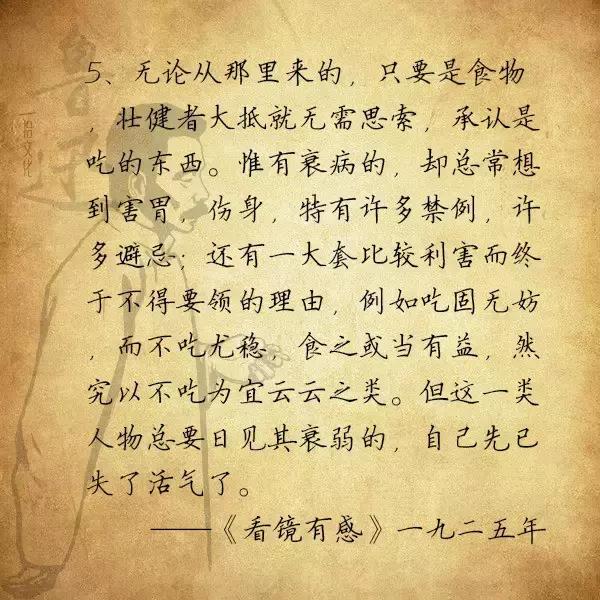 5、无论从那里来的，只要是食物
，壮健者大抵就无需思索，承认是
吃的东西。惟有衰病的，却总常想
到害胃，伤身，特有许多禁例，许
多避忌；还有一大套比较利害而终
于不得要领的理由，例如吃固无妨
，而不吃尤稳，食之或当有益，然
究以不吃为宜云云之类。但这一类
人物总要日见其衰弱的，自己先已
失了活气了。
——《看镜有感》一九二五年
鲁迅